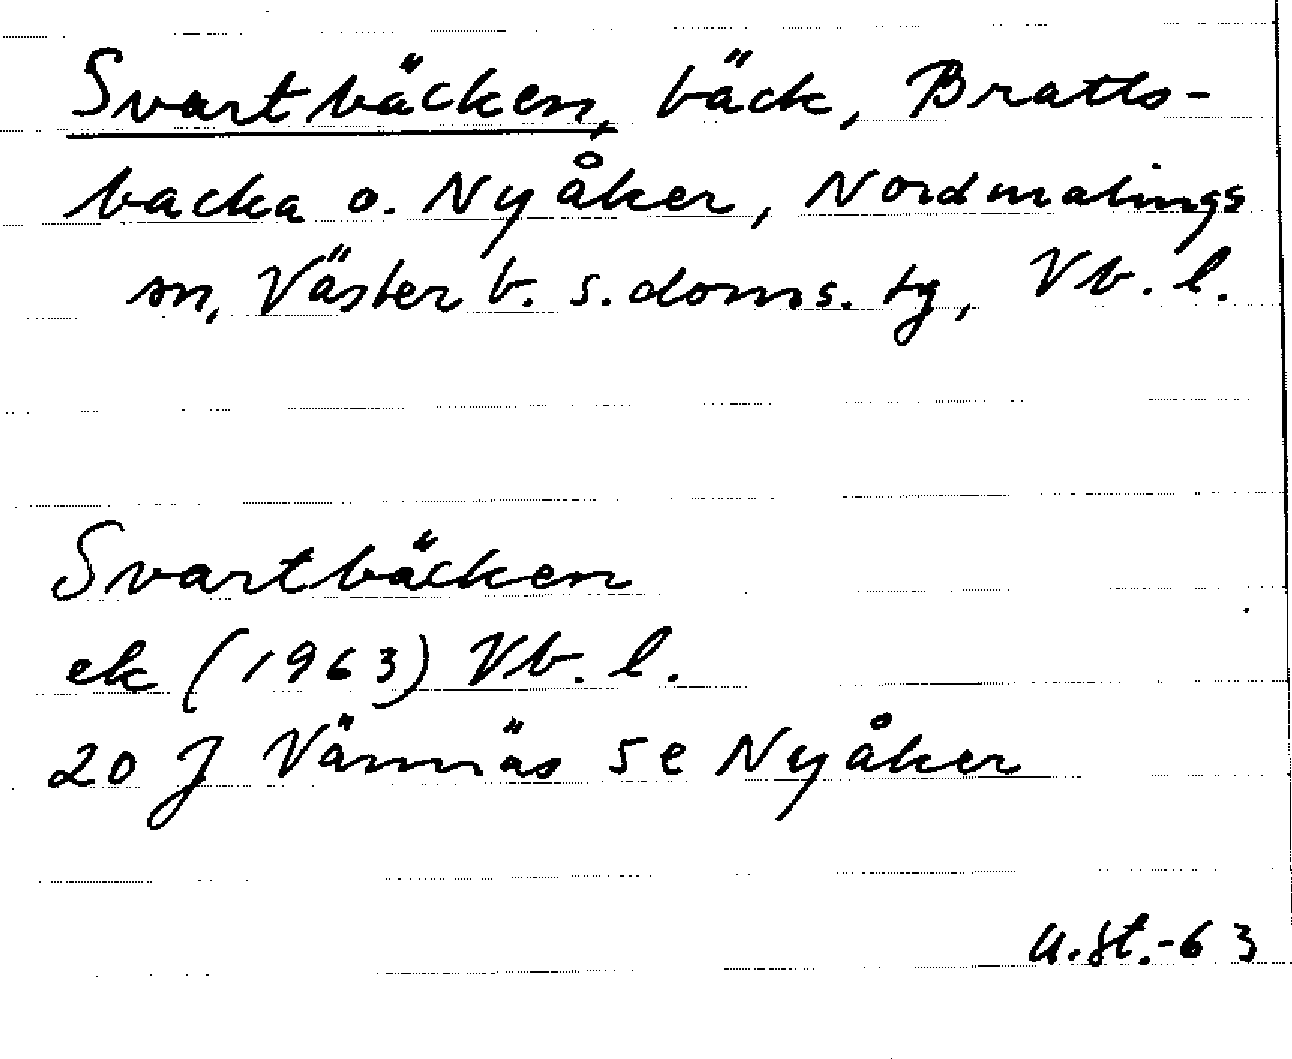 Svartbäcken, bäck, Bratts-
backa o. Nyåker, Nordmalings
sn, Västerb. s. doms. tg, Vb. l.
Svartbäcken
ek (1963) Vb. l.
20 J Vännäs 5 e Nyåker
U.St.-63